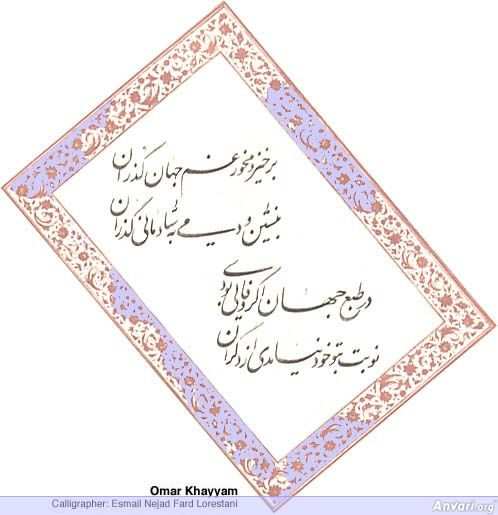 برخیز و مخور غم جهان گذران
بنشین و دمی به شادمانی گذران
در طبع جهان اگر وفایی بودی
نوبت بتو خود نیامدی از دگران
Omar Khayyam
Calligrapher: Esmail Nejad Fard Lorestani
Anvari.org